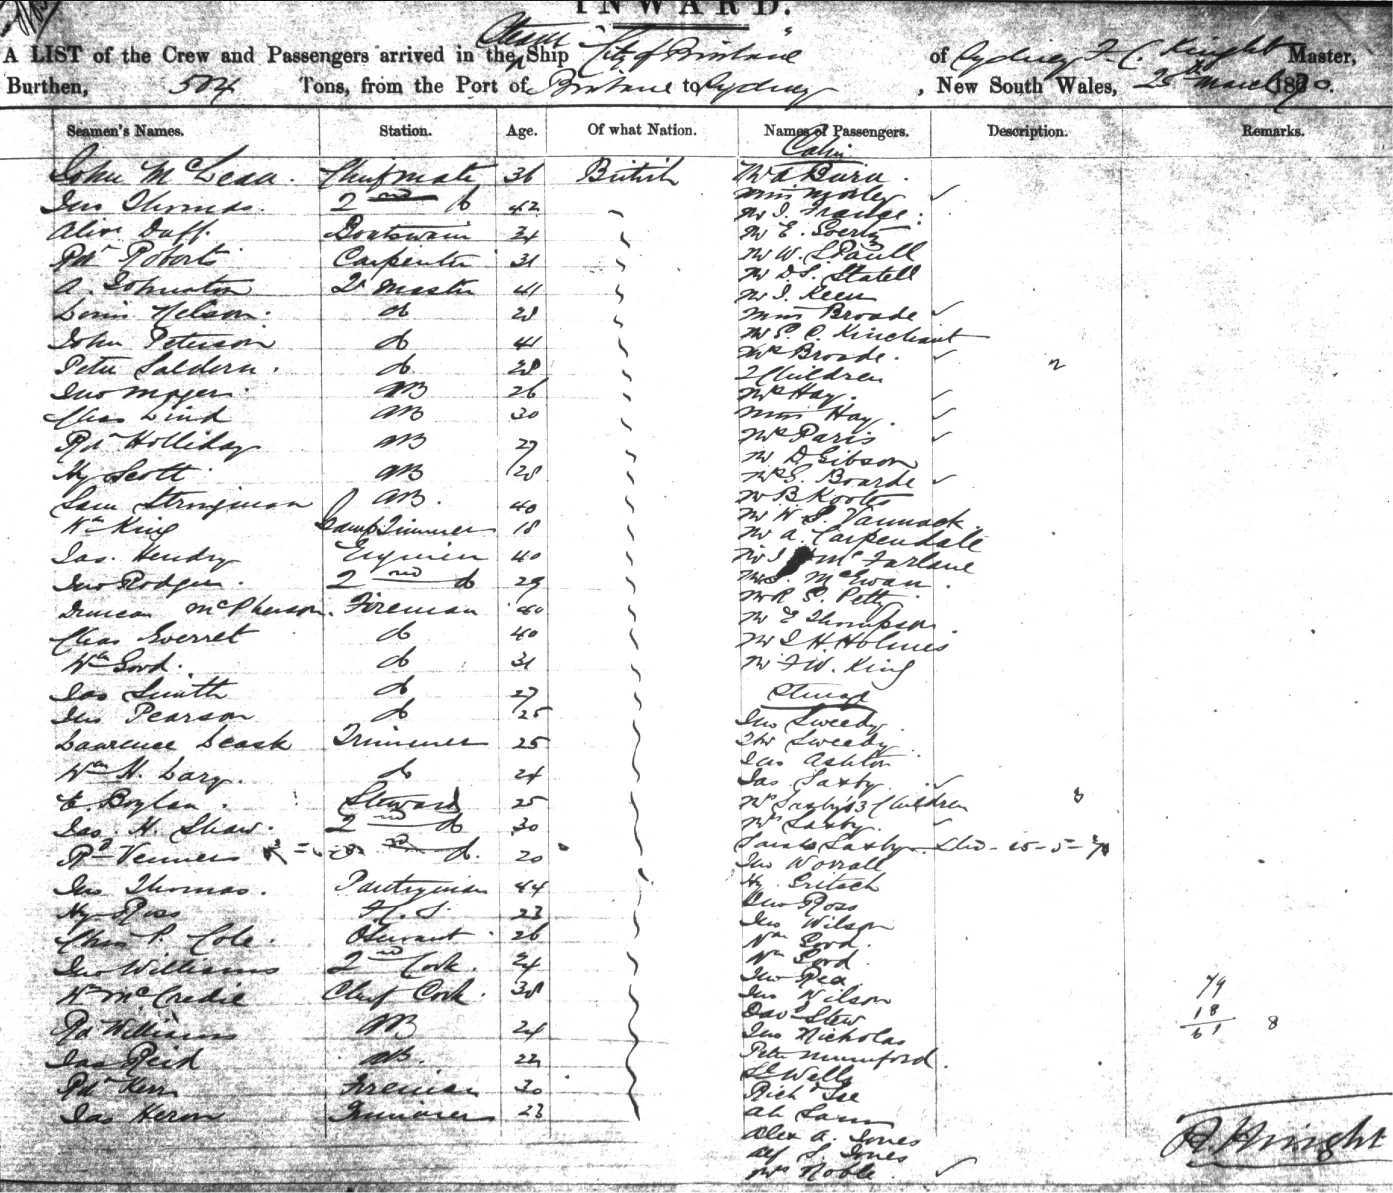 INWARD.
A LIST of the Crew and Passengers arrived in the Steam Ship "City of Brisbane" of Sydney, F. C. Knight Master,
Burthen, 504 Tons, from the Port of Brisbane to Sydney, New South Wales, 25th March 1870.
Seamen's Names. Station. Age. Of what Nation. Names of Passengers. Description. Remarks.
Cabin
John McLean. Chief mate 36 British Mr A Buru.
Jno Thomas. 2nd do 42 Miss Morley
Mr J.
Duff. Boatswain 34 Mr E.
Rdt Roberts Carpenter 31 Mr W. S. Paull
A. Johnston Qr Master 41 Mr D S. Statell
Mr J. Keen
Nelson. do 28 Miss Broade
John Peterson do 41 Mr E. C. Kinchant
Peter Saldern. do 28 Mrs Broade.
2 Children 2
Jno Myers. AB 26 Mrs Hay.
Chas Lind AB 30 Miss Hay.
Rdt Holliday AB 27 Mrs Paris
Mr D Gibson
Hy Scott AB 28 Mrs E. Boarde
Sam Stringman AB. 40 Mr B Koottz
Wm King Lamp Trimmer 18 Mr W. S. Vannack
Mr A. Carpendale
Jas. Hendry Engineer 40 Mr J McFarlane
Jno Rodger. 2nd do 29 Mr J. McEwan.
Duncan McPherson. Fireman 40 Mr R. S. Petty
Mr E Thompson.
Chas Everret do 40 Mr J. H. Holmes
Wm Good. do 31 Mr F W. King
Jas Smith do 27 Steerage
Jno Pearson do 25 Jno Sweedy
Lawrence Leask Trimmer 25 Thos Sweedy
Jas Ashton
Wm H. Lary. do 24 Jas Saxby
E. Boylan. Steward 25 Mrs Saxby & 3 Children 3
Jas. H. Shaw. 2nd do 30 Mr Saxby.
Rd Venners do. 20 Saxby 25-5-
Jno Worrall
Jno Thomas. Pantryman 44 Hy. Gritsch
Hy Ross F. S. 23 Ross
Jno Wilson
Chas P. Cole. Servant 26 Wm Good.
Jno Williams 2nd Cook. 24 Wm Good.
Jno Rea
Wm McCredie Chief Cook. 38 Jno Wilson
79
Davd Stew
18
Rd Williams AB 24 Jno Nicholas
61 8
Jas Reid AB. 22 Peter Mumford.
Wells
Rdt Kerr Fireman 30 Richd Lee
Jas Heron Trimmer 23 Ah Sam
Alex A. Jones
Alf S. Jones
Mrs Noble.
Knight